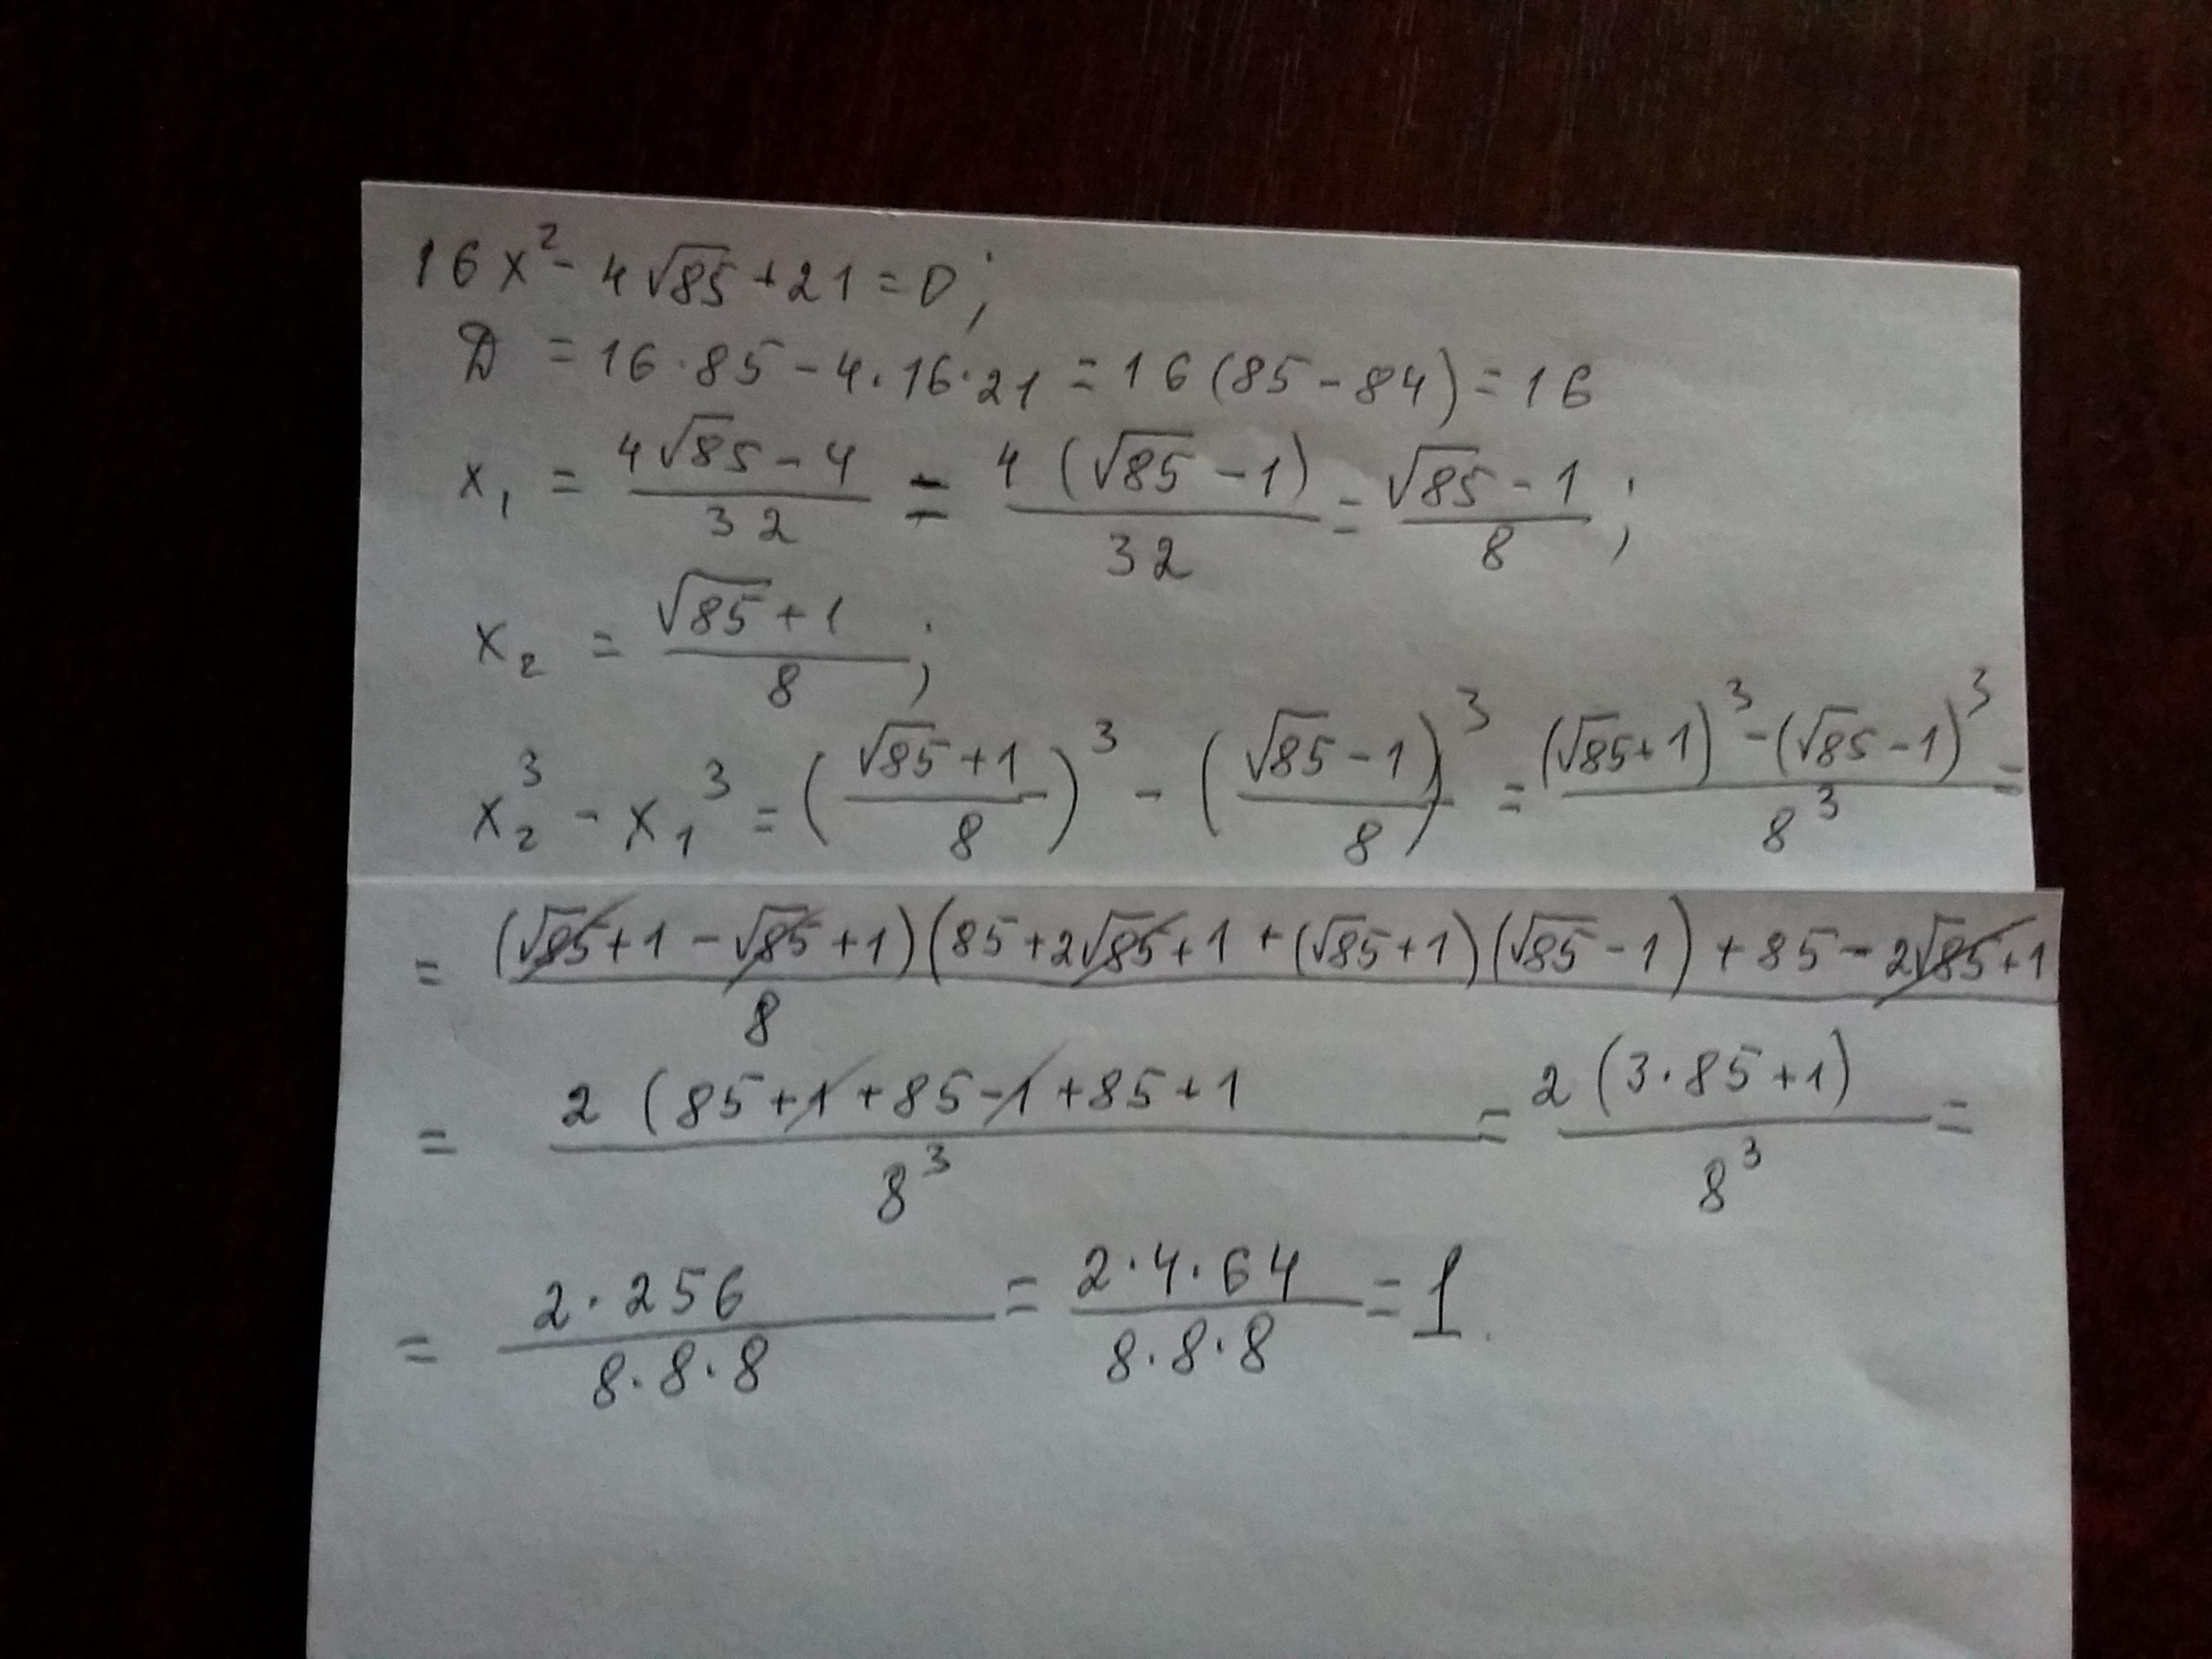 16x² - 4√85 + 21 = 0;
D = 16·85 - 4·16·21 = 16(85 - 84) = 16
x₁ = (4√85 - 4)/32 = 4(√85 - 1)/32 = (√85 - 1)/8;
x₂ = (√85 + 1)/8;
x₂³ - x₁³ = ((√85 + 1)/8)³ - ((√85 - 1)/8)³ = ((√85 + 1)³ - (√85 - 1)³)/8³ =
= (√85 + 1 - √85 + 1)(85 + 2√85 + 1 + (√85 + 1)(√85 - 1) + 85 - 2√85 + 1/8
= 2(85 + 1 + 85 - 1 + 85 + 1/8³ = 2(3·85 + 1)/8³ =
= 2·256/8·8·8 = 2·4·64/8·8·8 = 1.